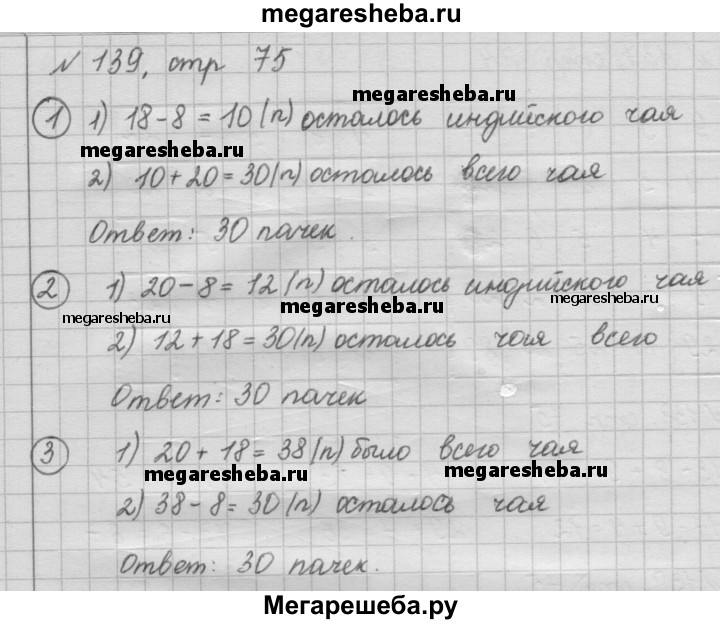 megaresheba.ru
№ 139, стр 75
1 1) 18-8=10(п) осталось индийского чая
megaresheba.ru
megaresheba.ru
2) 10+20=30(п) осталось всего чая
Ответ: 30 пачек.
2 1) 20-8=12(п) осталось индийского чая
megaresheba.ru
megaresheba.ru
megaresheba.ru
2) 12+18=30(п) осталось чая всего
Ответ: 30 пачек
3 1) 20+18=38(п) было всего чая
megaresheba.ru
megaresheba.ru
2) 38-8=30(п) осталось чая
Ответ: 30 пачек.
Мегарешеба.ру